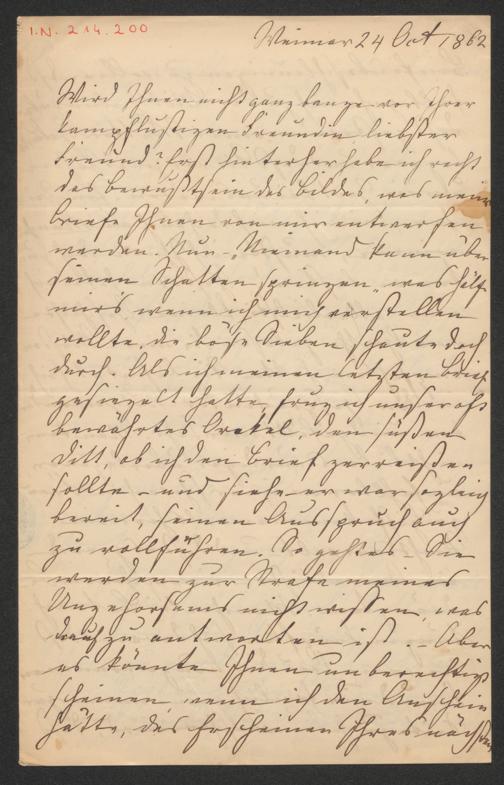 I.N. 214.200
Weimar 24 Oct 1862
Wird Ihnen nicht ganz bange vor Ihrer
kampflustigen Freundin liebster
Freund? Erst hinterher habe ich recht
das Bewußtsein des Bildes, was meine
Briefe Ihnen von mir entwerfen
werden. Nun „Niemand kann über
seinen Schatten springen„ was hilft
mirs wenn ich mich verstellen
wollte, die böse Sieben schaute doch
durch. Als ich meinen letzten Brief
gesiegelt hatte, frug ich unser oft
bewährtes Orakel, den süßen
Ditt, ob ich den Brief zerreißen
sollte – und siehe er war sogleich
bereit, seinen Ausspruch auch
zu vollführen. So geht es – Sie
werden zur Strafe meines
Ungehorsams nicht wissen, was
drauf zu antworten ist. – Aber
es könnte Ihnen unberechtigt
scheinen, wenn ich den Anschein
hätte, das Erscheinen Ihres nächsten